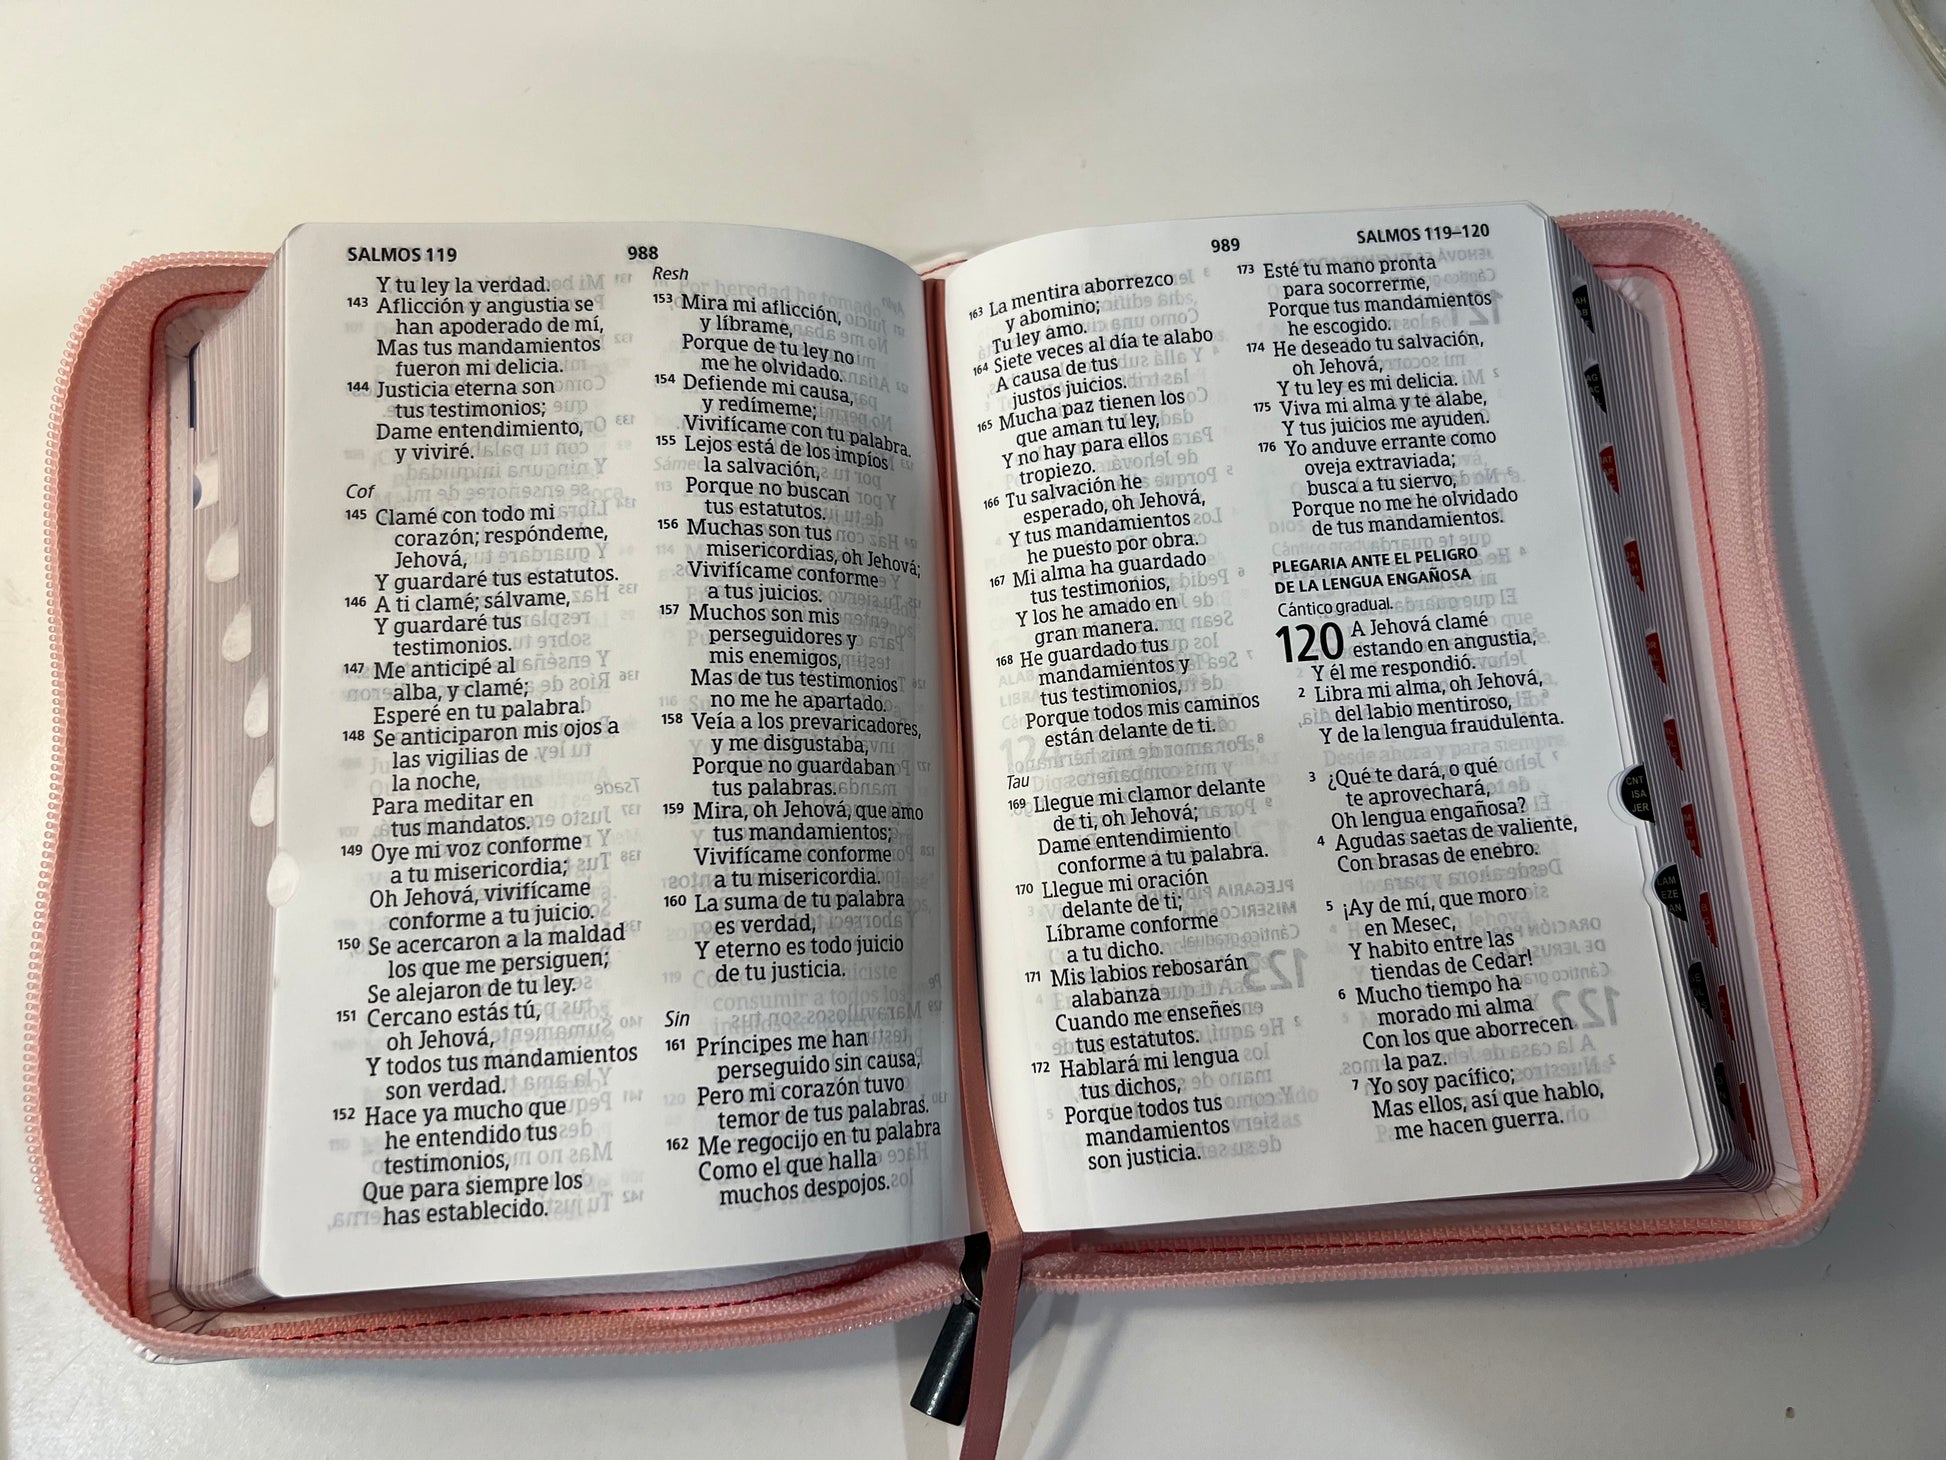 SALMOS 119
988
Y tu ley la verdad.
143 Aflicción y angustia se
han apoderado de mí,
Mas tus mandamientos
fueron mi delicia.
144 Justicia eterna son
tus testimonios;
Dame entendimiento,
y viviré.
Cof
145 Clamé con todo mi
corazón; respóndeme,
Jehová,
Y guardaré tus estatutos.
146 A ti clamé; sálvame,
Y guardaré tus
testimonios.
147 Me anticipé al
alba, y clamé;
Esperé en tu palabra.
148 Se anticiparon mis ojos a
las vigilias de
la noche,
Para meditar en
tus mandatos.
149 Oye mi voz conforme
a tu misericordia;
Oh Jehová, vivifícame
conforme a tu juicio.
150 Se acercaron a la maldad
los que me persiguen;
Se alejaron de tu ley.
151 Cercano estás tú,
oh Jehová,
Y todos tus mandamientos
son verdad.
152 Hace ya mucho que
he entendido tus
testimonios,
Que para siempre los
has establecido.
Resh
153 Mira mi aflicción,
y líbrame,
Porque de tu ley no
me he olvidado.
154 Defiende mi causa,
y redímeme;
Vivifícame con tu palabra.
155 Lejos está de los impíos
la salvación,
Porque no buscan
tus estatutos.
156 Muchas son tus
misericordias, oh Jehová;
Vivifícame conforme
a tus juicios.
157 Muchos son mis
perseguidores y
mis enemigos,
Mas de tus testimonios
no me he apartado.
158 Veía a los prevaricadores,
y me disgustaba,
Porque no guardaban
tus palabras.
159 Mira, oh Jehová, que amo
tus mandamientos;
Vivifícame conforme
a tu misericordia.
160 La suma de tu palabra
es verdad,
Y eterno es todo juicio
de tu justicia.
Sin
161 Príncipes me han
perseguido sin causa,
Pero mi corazón tuvo
temor de tus palabras.
162 Me regocijo en tu palabra
Como el que halla
muchos despojos.
989
SALMOS 119–120
163 La mentira aborrezco
y abomino;
Tu ley amo.
164 Siete veces al día te alabo
A causa de tus
justos juicios.
165 Mucha paz tienen los
que aman tu ley,
Y no hay para ellos
tropiezo.
166 Tu salvación he
esperado, oh Jehová,
Y tus mandamientos
he puesto por obra.
167 Mi alma ha guardado
tus testimonios,
Y los he amado en
gran manera.
168 He guardado tus
mandamientos y
tus testimonios,
Porque todos mis caminos
están delante de ti.
Tau
169 Llegue mi clamor delante
de ti, oh Jehová;
Dame entendimiento
conforme a tu palabra.
170 Llegue mi oración
delante de ti;
Líbrame conforme
a tu dicho.
171 Mis labios rebosarán
alabanza
Cuando me enseñes
tus estatutos.
172 Hablará mi lengua
tus dichos,
Porque todos tus
mandamientos
son justicia.
173 Esté tu mano pronta
para socorrerme,
Porque tus mandamientos
he escogido.
174 He deseado tu salvación,
oh Jehová,
Y tu ley es mi delicia.
175 Viva mi alma y te alabe,
Y tus juicios me ayuden.
176 Yo anduve errante como
oveja extraviada;
busca a tu siervo,
Porque no me he olvidado
de tus mandamientos.
PLEGARIA ANTE EL PELIGRO
DE LA LENGUA ENGAÑOSA
Cántico gradual.
120 A Jehová clamé
estando en angustia,
Y él me respondió.
2 Libra mi alma, oh Jehová,
del labio mentiroso,
Y de la lengua fraudulenta.
3 ¿Qué te dará, o qué
te aprovechará,
Oh lengua engañosa?
4 Agudas saetas de valiente,
Con brasas de enebro.
5 ¡Ay de mí, que moro
en Mesec,
Y habito entre las
tiendas de Cedar!
6 Mucho tiempo ha
morado mi alma
Con los que aborrecen
la paz.
7 Yo soy pacífico;
Mas ellos, así que hablo,
me hacen guerra.
CNT
ISA
JER
LAM
EZE